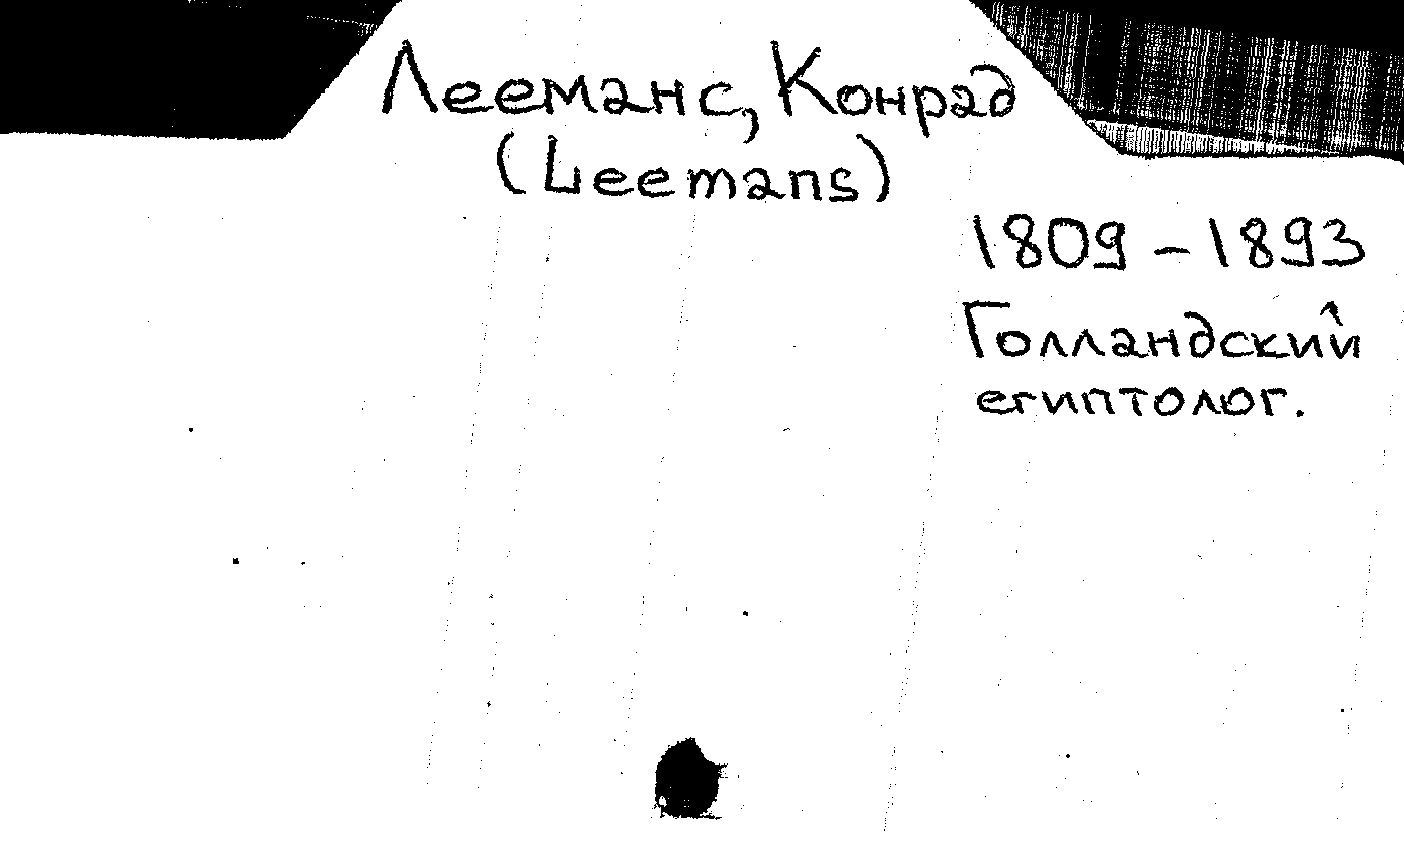 Лееманс, Конрад
(Leemans)
1809 – 1893
Голландский
египтолог.